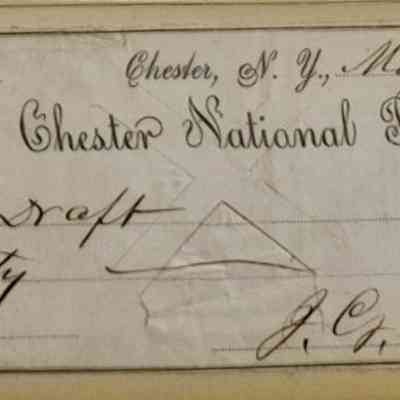 Chester, N. Y.,
Chester National
Draft
ty
J. G.